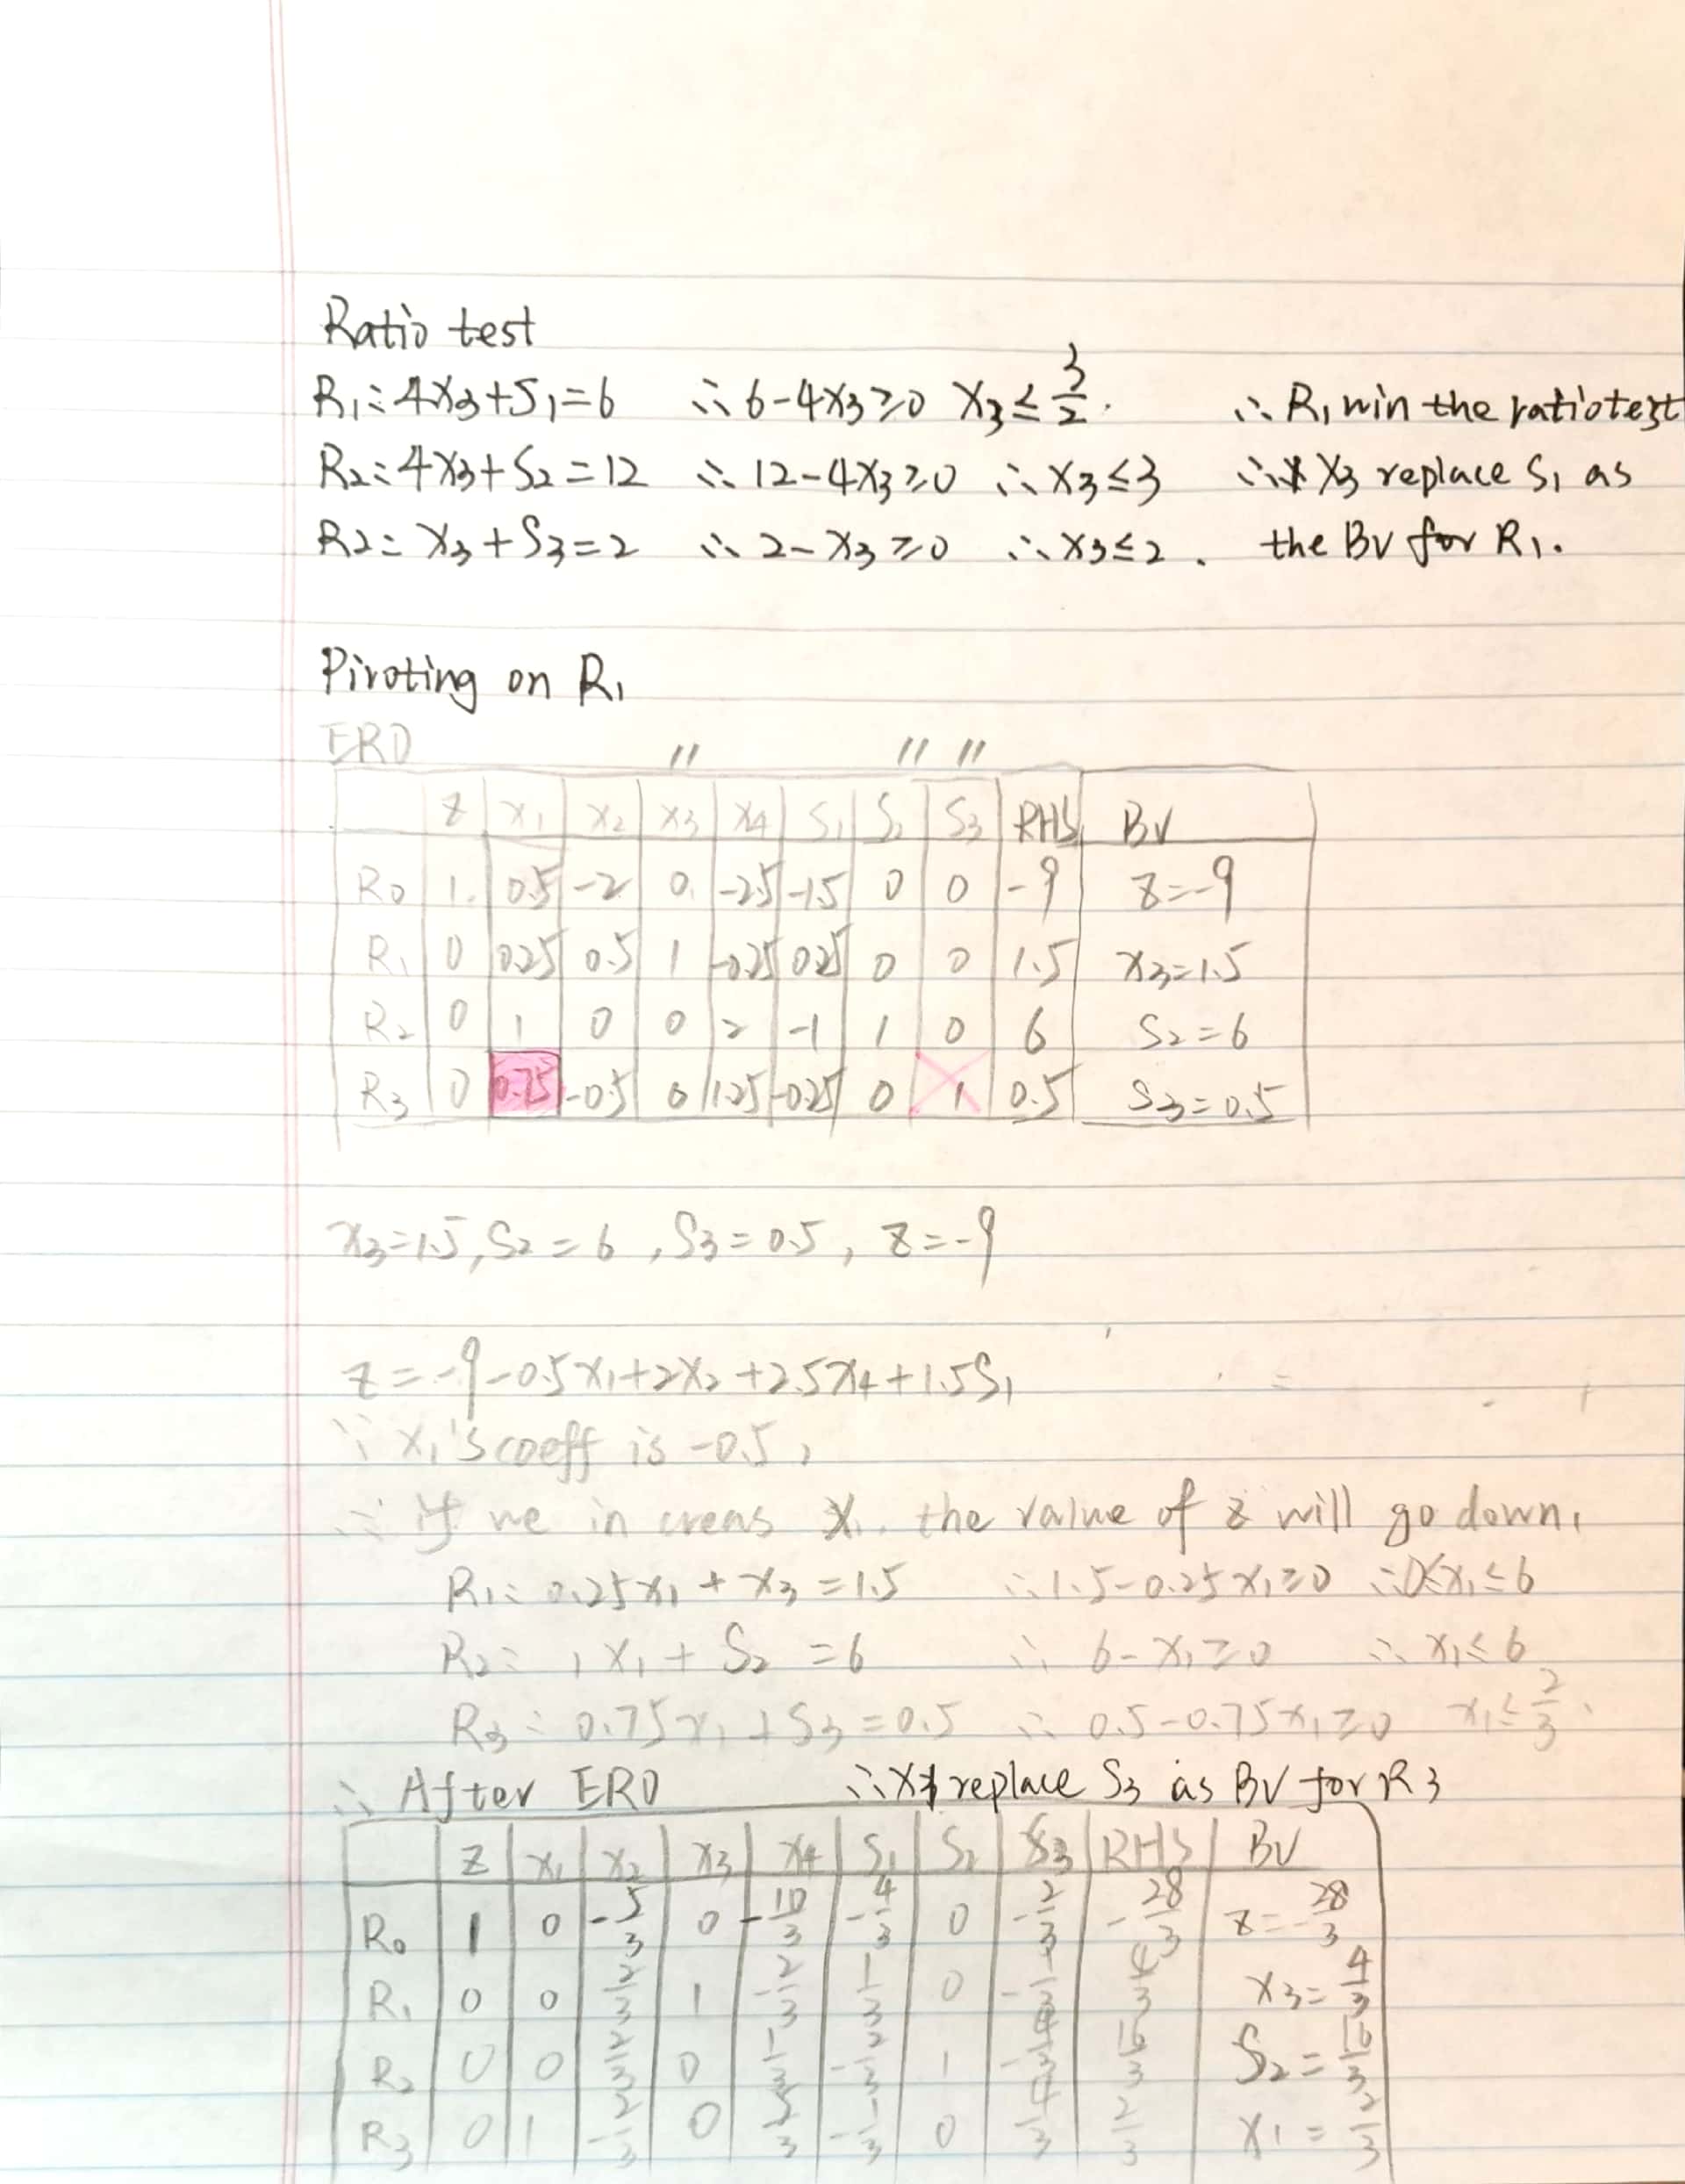 Ratio test
R1: 4x3+S1=6 ∴ 6-4x3≥0 x3≤3/2. ∴ R1 win the ratio test
R2: 4x3+S2=12 ∴ 12-4x3≥0 ∴ x3≤3 ∴ x3 replace S1 as
R2: x3+S3=2 ∴ 2-x3≥0 ∴ x3≤2. the BV for R1.
Pivoting on R1
ERO
Z x1 x2 x3 x4 S1 S2 S3 RHS BV
R0 1 0.5 -2 0 -2.5 -1.5 0 0 -9 z=-9
R1 0 0.25 0.5 1 -0.25 0.25 0 0 1.5 x3=1.5
R2 0 1 0 0 2 -1 1 0 6 S2=6
R3 0 0.75 -0.5 0 1.25 -0.25 0 1 0.5 S3=0.5
x3=1.5, S2=6, S3=0.5, z=-9
z=-9-0.5x1+2x2+2.5x4+1.5S1
∵ x1's coeff is -0.5,
∴ if we in creas x1. the value of z will go down,
R1: 0.25x1+x3=1.5 ∴ 1.5-0.25x1≥0 ∴ x1≤6
R2: 1x1+S2=6 ∴ 6-x1≥0 ∴ x1≤6
R3: 0.75x1+S3=0.5 ∴ 0.5-0.75x1≥0 x1≤2/3.
∴ After ERO ∴ x1 replace S3 as BV for R3
Z x1 x2 x3 x4 S1 S2 S3 RHS BV
R0 1 0 -5/3 0 -10/3 -4/3 0 -2/3 -28/3 z=-28/3
R1 0 0 2/3 1 -2/3 1/3 0 -1/3 4/3 x3=4/3
R2 0 0 2/3 0 1/3 -2/3 1 -4/3 16/3 S2=16/3
R3 0 1 -2/3 0 5/3 -1/3 0 4/3 2/3 x1=2/3